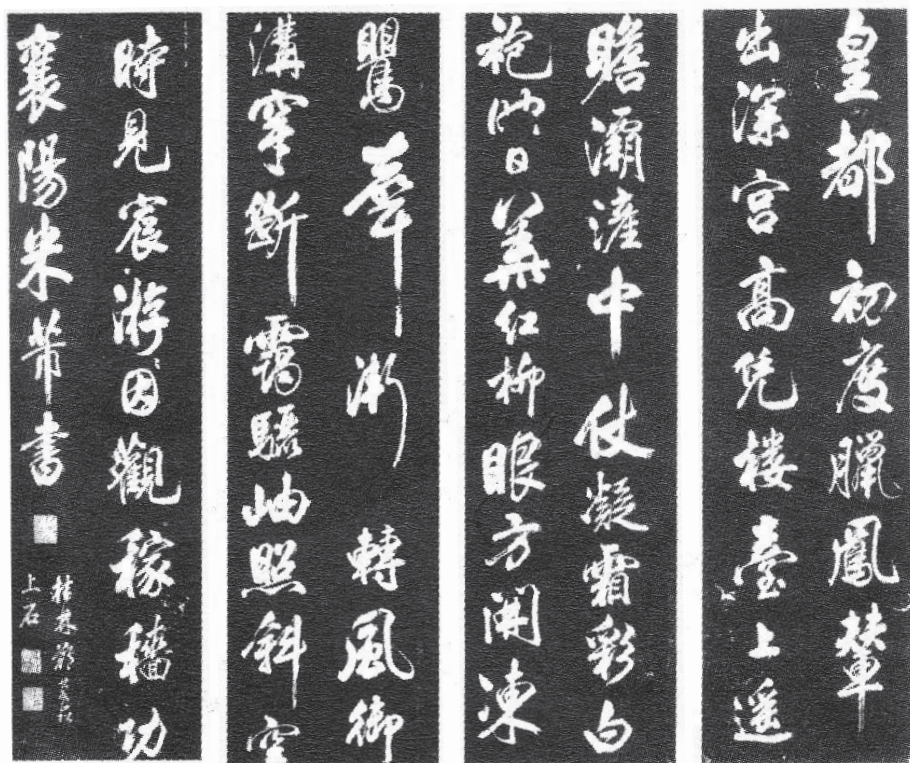 皇都初度臘鳳輦
出深宮高凭樓臺上遥
瞻灞滻中仗凝霜彩白
袍映日華紅柳眼方開凍
鶯聲漸轉風御
溝穿斷靄驪岫照斜空
時見宸游因觀稼穡功
襄陽米芾書
桂林
上石